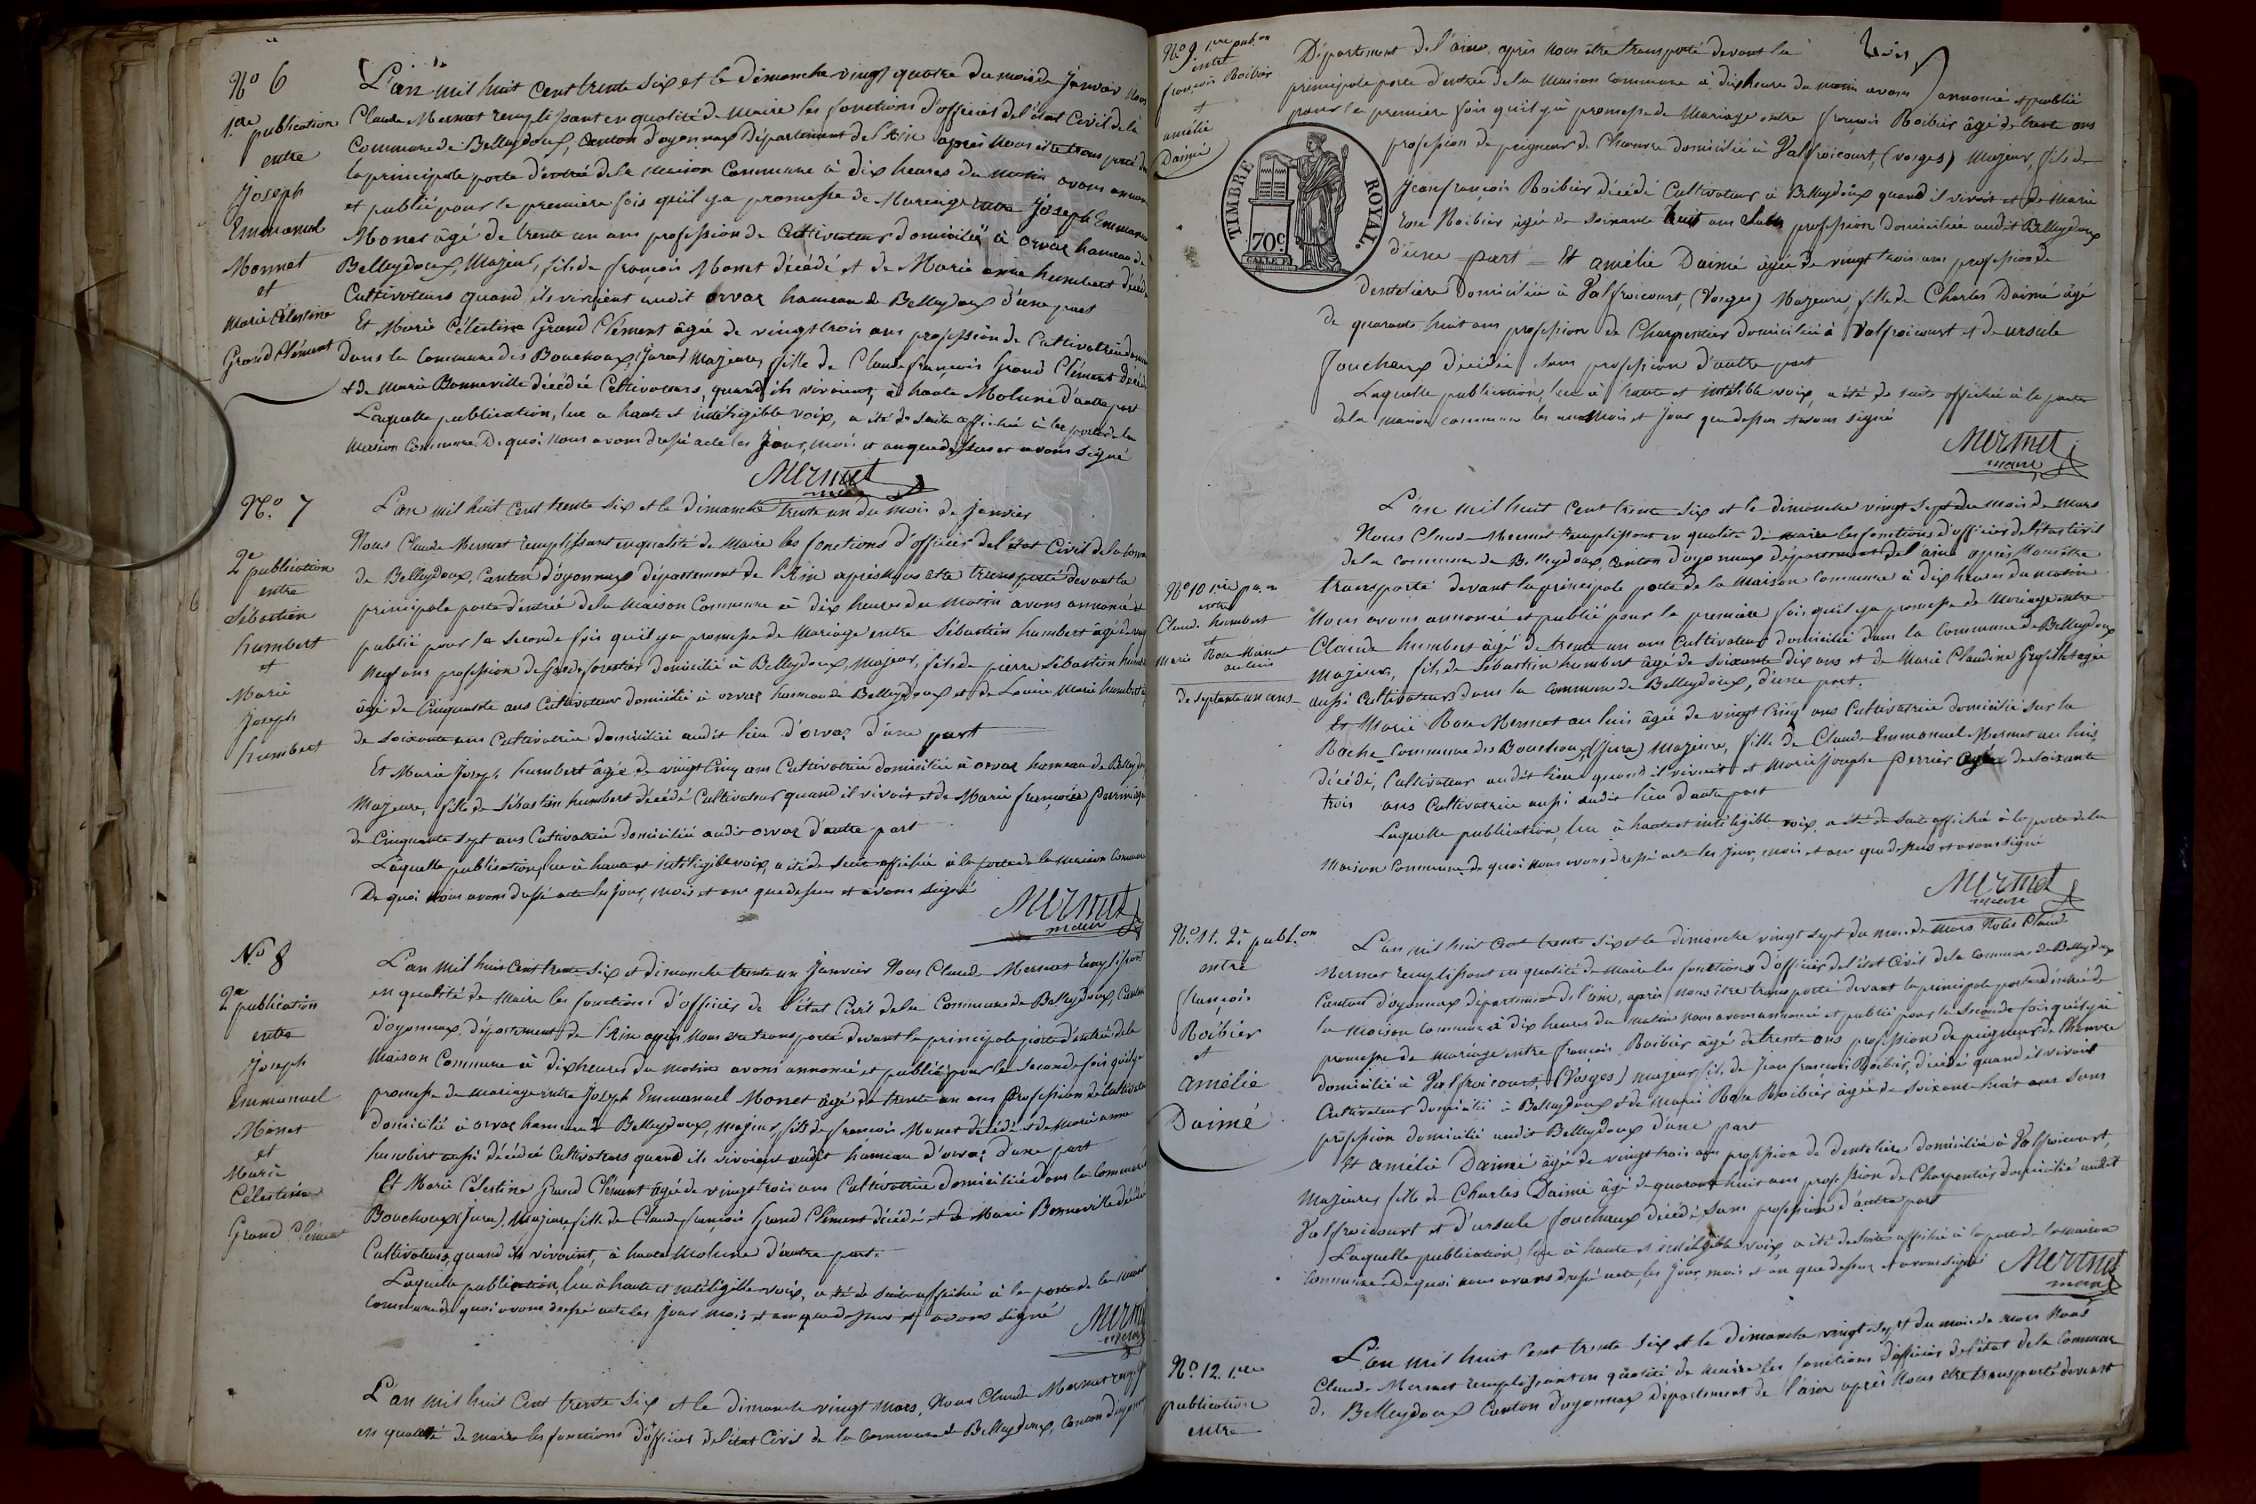 N.o 6
1.re publication
entre
Joseph
Emmanuel
Monnet
et
Marie Célestine
Grand Clément
L'an mil huit cent trente six et le dimanche vingt quatre du mois de Janvier Nous
Claude Mermet remplissant en qualité de Maire les fonctions d'officier de l'état Civil de la
Commune de Belleydoux, Canton d'oyonnax Département de l'Ain après Nous être transporté
la principale porte d'entrée de la maison Commune à dix heures du matin avons annoncé
et publié pour la première fois qu'il y a promesse de Mariage entre Joseph Emmanuel
Monet âgé de trente un ans profession de Cultivateur domicilié à orvaz hameau de
Belleydoux, Majeur, fils de françois Monet décédé et de Marie anne humbert décédé
Cultivateurs quand ils vivoient audit orvaz hameau de Belleydoux d'une part
Et Marie Célestine Grand Clément âgée de vingt trois ans profession de Cultivatrice
dans la Commune des Bouchoux (Jura) Majeure, fille de Claude françois Grand Clément décédé
& de Marie Bonneville décédée Cultivateurs, quand ils vivoient, à haute Molune d'autre part
Laquelle publication, lue à haute et intéligible voix, a été de suite affichée à la porte de la
Maison Commune De quoi nous avons dressé acte les Jour, mois et an que dessus et avons signé
Mermet
maire
N.o 7
2.e publication
entre
Sébastien
humbert
et
Marie
Joseph
humbert
L'an mil huit cent trente six et le dimanche trente un du mois de Janvier
Nous Claude Mermet remplissant en qualité de Maire les fonctions d'officier de l'état Civil de la
de Belleydoux, Canton d'oyonnax département de l'Ain après nous être transporté devant la
principale porte d'entrée de la Maison Commune à dix heures du Matin avons annoncé et
publié pour la seconde fois qu'il y a promesse de Mariage entre Sébastien humbert âgé de
neuf ans profession de Garde forestier domicilié à Belleydoux, Majeur, fils de pierre Sébastien
âgé de Cinquante ans Cultivateur domicilié à orvaz hameau de Belleydoux et de Marie humbert
de soixante ans Cultivatrice domiciliée audit lieu d'orvaz d'une part
Et Marie Joseph humbert âgée de vingt cinq ans Cultivatrice domiciliée à orvaz hameau de
Majeure, fille de Sébastien humbert décédé Cultivateur quand il vivoit et de Marie françoise
de Cinquante sept ans Cultivatrice domiciliée audit orvaz d'autre part
Laquelle publication, lue à haute et intéligible voix, a été de suite affichée à la porte de la maison Commune
De quoi nous avons dressé acte les jour, mois et an que dessus et avons signé
Mermet
maire
N.o 8
2.e publication
entre
Joseph
Emmanuel
Monet
et
Marie
Célestine
Grand Clément
L'an mil huit Cent trente six et dimanche trente un Janvier Nous Claude Mermet
en qualité de Maire les fonctions d'officier de l'état Civil de la Commune de Belleydoux, Canton
d'oyonnax, département de l'Ain après Nous être transporté devant la principale porte d'entrée de la
Maison Commune à dix heures du matin avons annoncé et publié pour la seconde fois qu'il y a
promesse de mariage entre Joseph Emmanuel Monet âgé de trente un ans profession de
domicilié à orvaz hameau de Belleydoux, Majeur, fils de françois Monet décédé et de Marie anne
humbert aussi décédée Cultivateurs quand ils vivoient audit hameau d'orvaz d'une part
Et Marie Célestine Grand Clément âgée de vingt trois ans Cultivatrice domiciliée dans la Commune
Bouchoux (Jura), Majeure, fille de Claude françois Grand Clément décédé et de Marie Bonneville décédée
Cultivateurs, quand ils vivoient, à haute Molune d'autre part.
Laquelle publication, lue à haute et intéligible voix, a été de suite affichée à la porte de la
Commune de quoi avons dressé acte les Jour mois et an que dessus et avons signé
maire
L'an mil huit Cent trente six et le dimanche vingt Mars, Nous Claude Mermet
en qualité de maire les fonctions d'officier de l'état Civil de la Commune de Belleydoux, Canton
N.o 9 1.re pub.on
entre
françois Roibier
et
amélie
Daimé
TIMBRE ROYAL.
70c.
Département de l'ain, après nous être transporté devant la
principale porte d'entrée de la Maison Commune à dix heures du matin avons annoncé et publié
pour la première fois qu'il y a promesse de Mariage entre françois Roibier âgé de trente ans
profession de peigneur de Chanvre domicilié à Valfroicourt, (vosges) Majeur, fils de
Jean françois Roibier décédé Cultivateur à Belleydoux quand il vivoit et de Marie
Rose Roibier âgée de soixante huit ans sans profession domiciliée audit Belleydoux
d'une part – Et amélie Daimé âgée de vingt trois ans profession de
dentelière domiciliée à Valfroicourt, (Vosges) Majeure, fille de Charles Daimé âgé
de quarante huit ans profession de Charpentier domicilié à Valfroicourt et de ursule
Jouchaux décédée sans profession d'autre part
Laquelle publication, lue à haute et voix, a été de suite affichée à la porte
de la maison commune les an Mois et Jour que dessus et avons signé
Mermet
maire
N.o 10 1.re
entre
Claude humbert
et
Marie Rose Mermet
au luis
de septante un ans
L'an mil huit cent trente six et le dimanche vingt sept du mois de mars
Nous Claude Mermet remplissant en qualité de maire les fonctions d'officier de l'état civil
de la commune de Belleydoux, Canton d'oyonnax département de l'ain après Nous être
transporté devant la principale porte de la Maison commune à dix heures du matin
Nous avons annoncé et publié pour la première fois qu'il y a promesse de Mariage entre
Claude humbert âgé de trente un ans Cultivateur domicilié dans la Commune de Belleydoux
Majeur, fils de Sébastien humbert âgé de soixante dix ans et de Marie Claudine âgée
aussi Cultivateurs dans la commune de Belleydoux, d'une part.
Et Marie Rose Mermet au luis âgée de vingt cinq ans Cultivatrice domiciliée sur la
Roche Commune des Bouchoux (Jura) Majeure, fille de Claude Emmanuel Mermet au luis
décédé, Cultivateur audit lieu quand il vivoit et Marie Josephe perrier âgée de soixante
trois ans Cultivatrice aussi audit lieu d'autre part
Laquelle publication, lue à haute et intéligible voix, a été de suite affichée à la porte de la
Maison Commune, de quoi nous avons dressé acte les Jour, mois et an que dessus et avons signé
Mermet
maire
N.o 11. 2.e publ.on
entre
françois
Roibier
et
amélie
Daimé
L'an mil huit cent trente six et le dimanche vingt sept du mois de mars Nous Claude
Mermet remplissant en qualité de maire les fonctions d'officier de l'état Civil de la commune de Belleydoux
Canton d'oyonnax département de l'ain, après Nous être transporté devant la principale porte d'entrée de
la Maison Commune à dix heures du matin nous avons annoncé et publié pour la seconde fois qu'il y a
promesse de mariage entre françois Roibier âgé de trente ans profession de peigneur de Chanvre
domicilié à Valfroicourt, (Vosges) majeur, fils de Jean françois Roibier, décédé quand il vivoit
Cultivateur domicilié à Belleydoux et de Marie Rose Roibier âgée de soixante huit ans sans
profession domiciliée audit Belleydoux d'une part
Et amélie Daimé âgée de vingt trois ans profession de dentelière domiciliée à Valfroicourt,
Majeure, fille de Charles Daimé âgé de quarante huit ans profession de Charpentier domicilié audit
Valfroicourt et d'ursule Jouchaux décédée sans profession d'autre part
Laquelle publication, lue à haute et intéligible voix, a été de suite affichée à la porte de la maison
Commune de quoi nous avons dressé acte les Jour, mois et an que dessus et avons signé
Mermet
maire
N.o 12. 1.re
publication
entre
L'an mil huit cent trente six et le dimanche vingt sept du mois de mars Nous
Claude Mermet remplissant en qualité de maire les fonctions d'officier de l'état de la commune
de Belleydoux Canton d'oyonnax département de l'ain après Nous être transporté devant